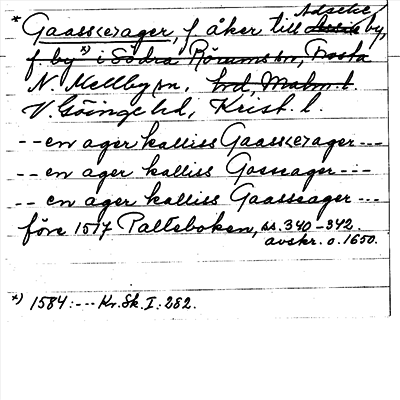 Adseke
* Gaass(e)ager, f åker till by,
f. by *) i Södra Rörums sn, Frosta
N. Mellby sn, hrd, Malm. l.
V. Göinge hd, Krist. l.
-- en ager kalliss Gaass(e)ager ---
-- en ager kaliss Gossager ---
-- en ager kaliss Gaasseager ---
före 1517 Palteboken, ss. 340-342.
avskr. o. 1650.
*) 1584: --- Kr. Sk. I: 282.